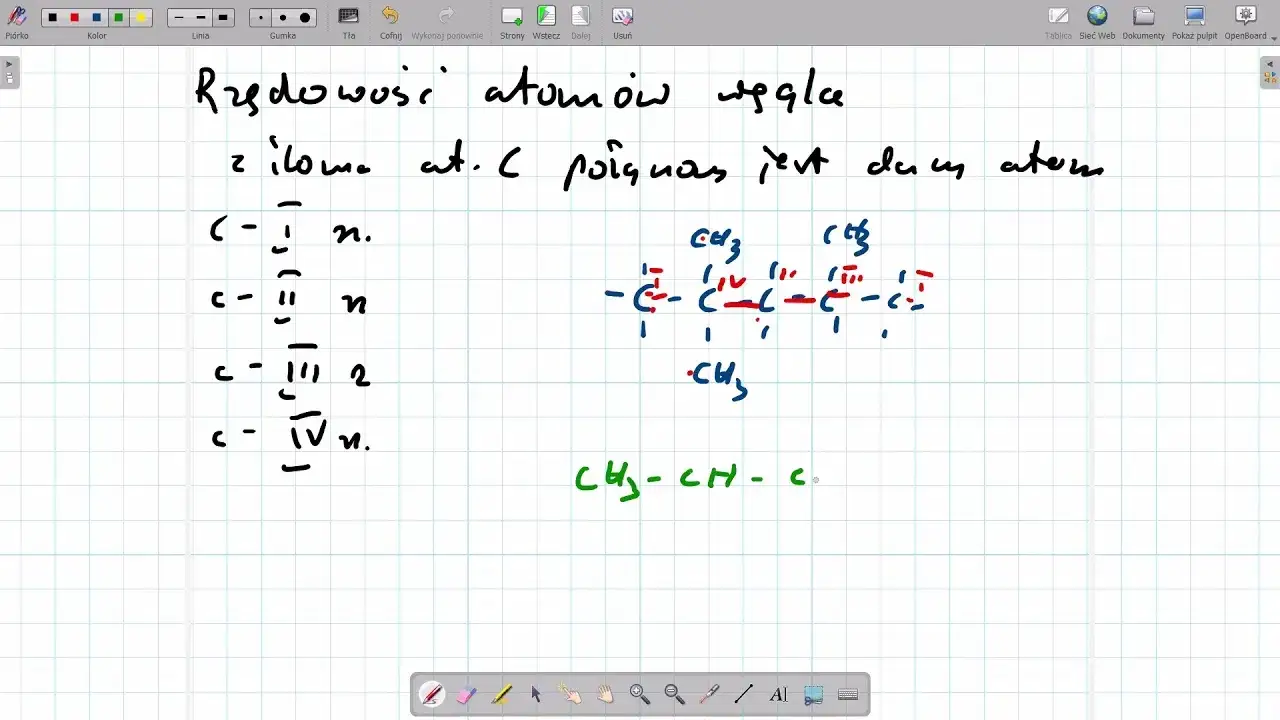 Piórko
Kolor
Linia
Gumka
Tła
Cofnij
Wykonaj ponownie
Strony
Wstecz
Dalej
Usuń
Tablica
Sieć Web
Dokumenty
Pokaż pulpit
OpenBoard
Rzędowość atomów węgla
z iloma at. C połączony jest dany atom
C - I rz.
C - II rz
C - III rz
C - IV rz.
CH3 CH3
I IV II III I
- C - C - C - C - C -
CH3
CH3 - CH - C
AI